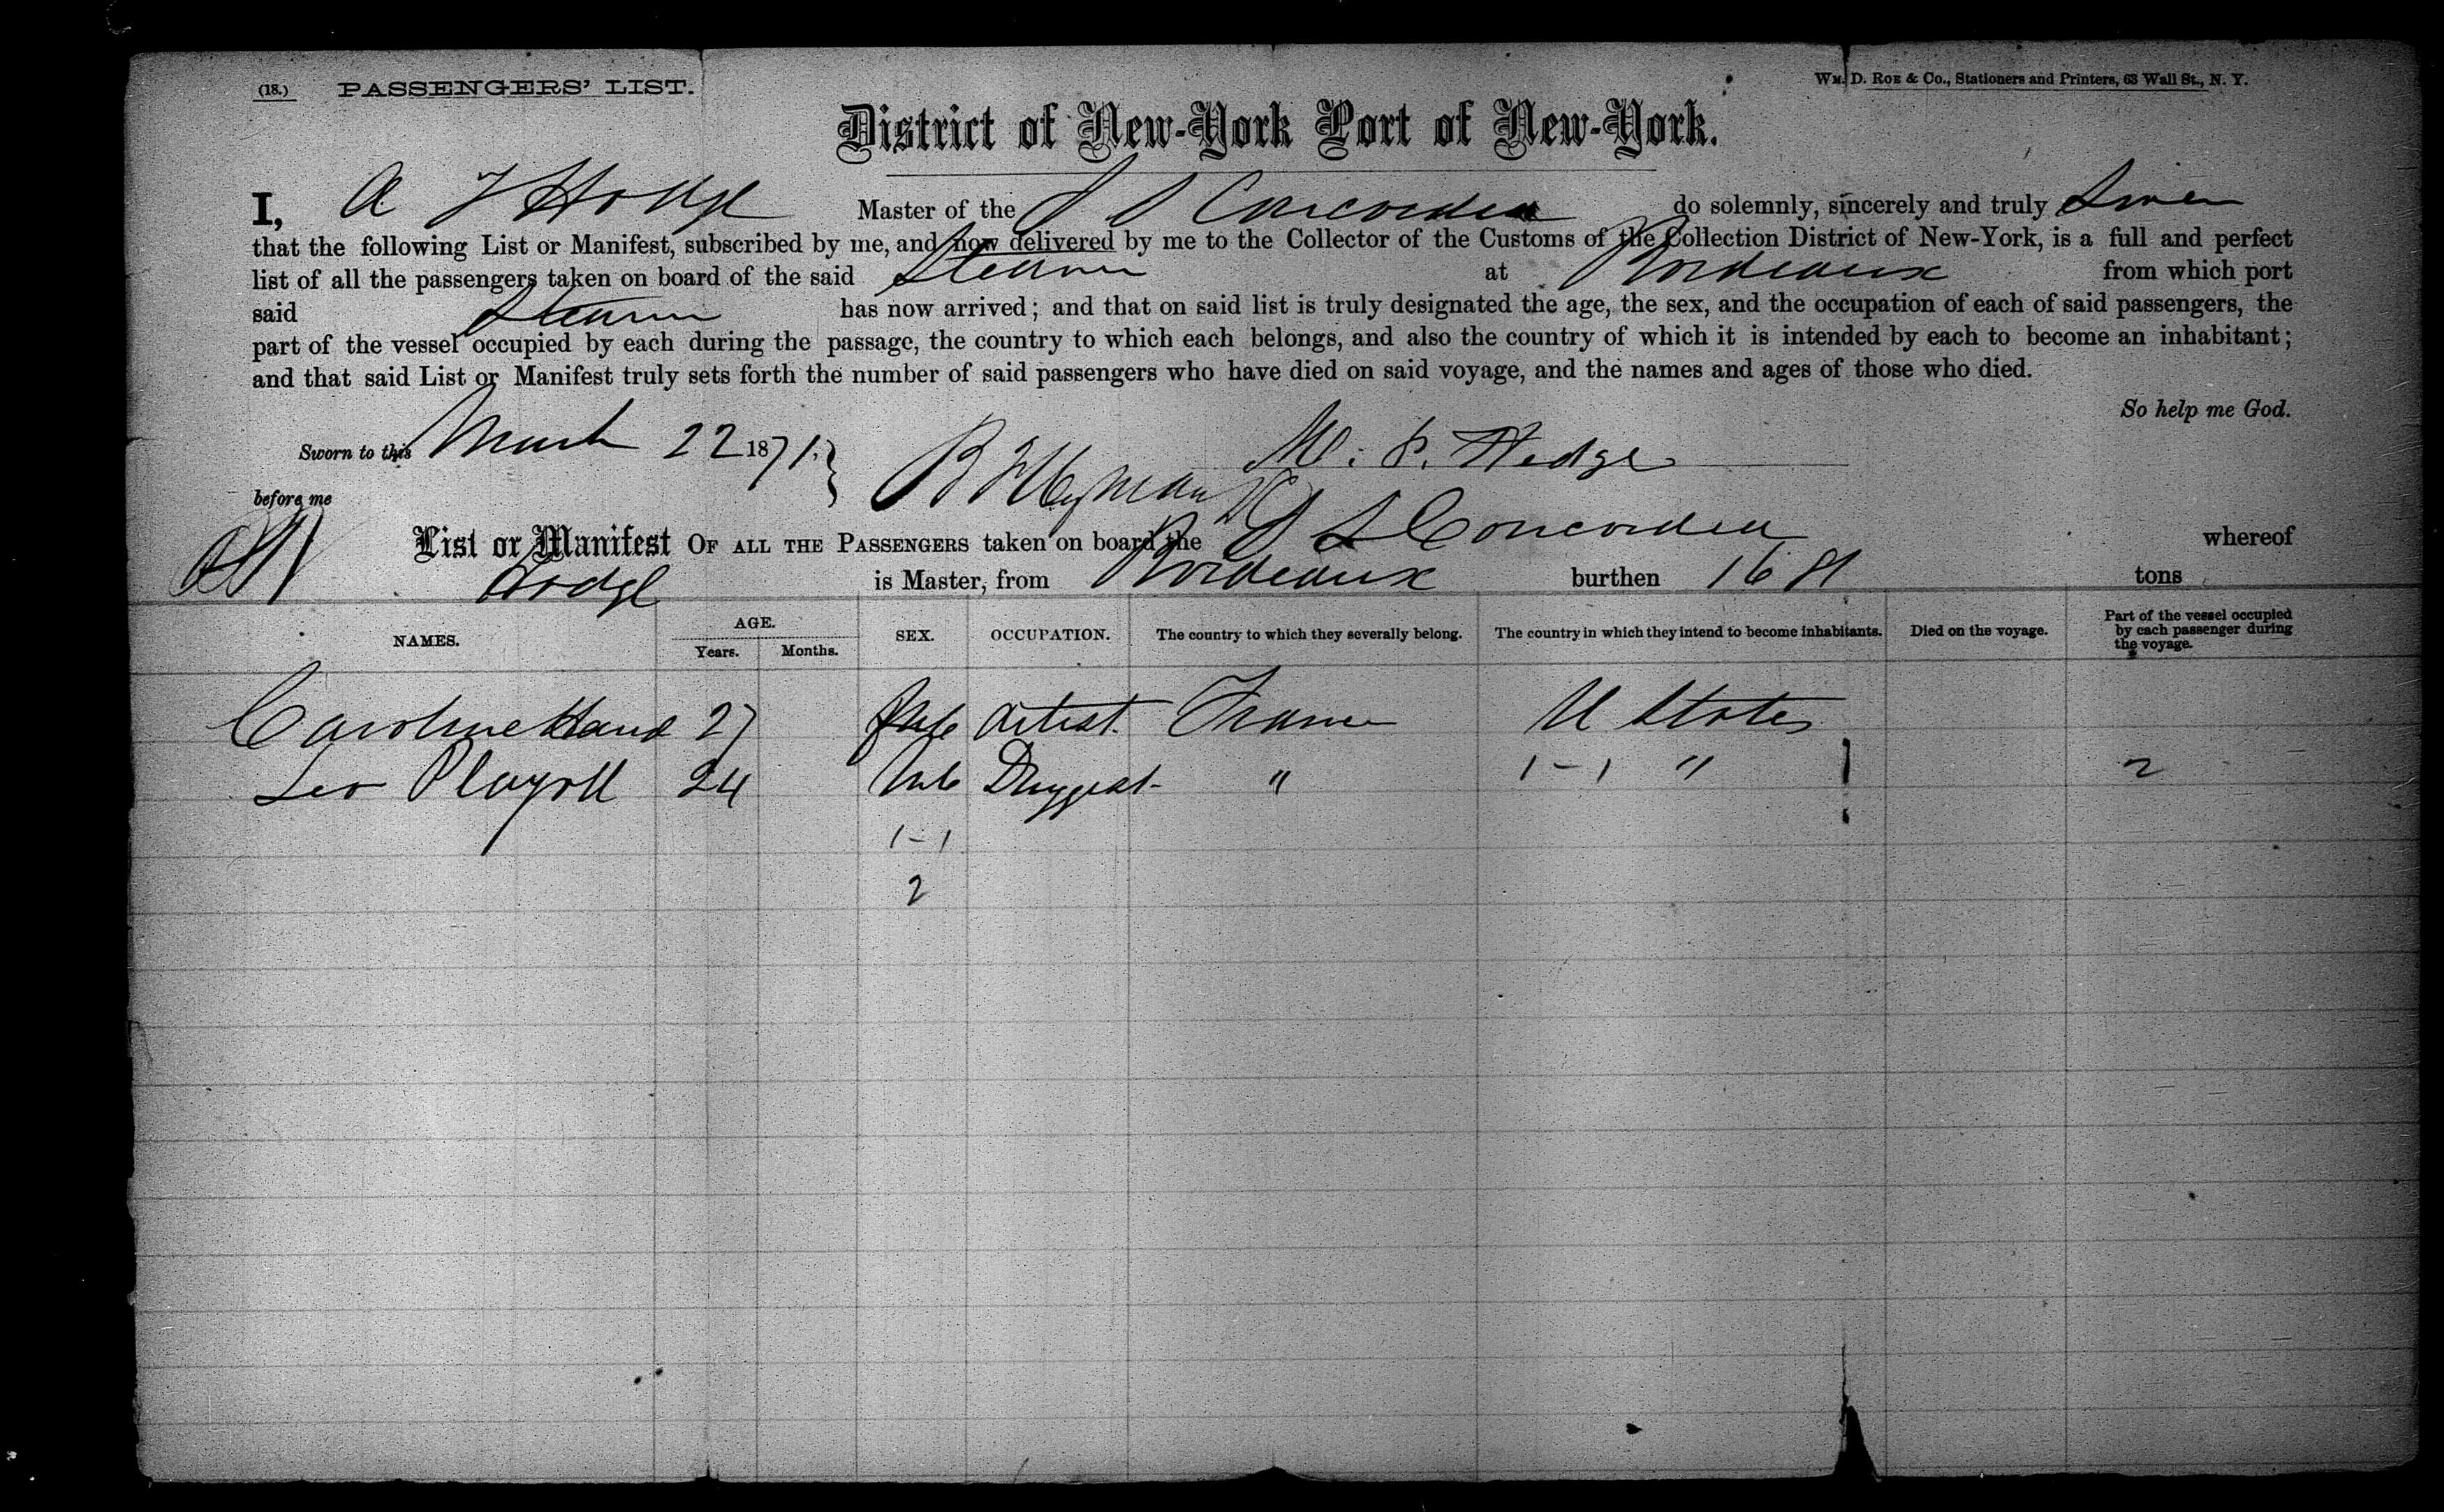 (18.) PASSENGERS' LIST. WM. D. ROE & Co., Stationers and Printers, 63 Wall St., N. Y.
District of New-York Port of New-York.
I, A Hodge Master of the S S Concordia do solemnly, sincerely and truly Swear
that the following List or Manifest, subscribed by me, and now delivered by me to the Collector of the Customs of the Collection District of New-York, is a full and perfect
list of all the passengers taken on board of the said Steamer at Bordeaux from which port
said Steamer has now arrived; and that on said list is truly designated the age, the sex, and the occupation of each of said passengers, the
part of the vessel occupied by each during the passage, the country to which each belongs, and also the country of which it is intended by each to become an inhabitant;
and that said List or Manifest truly sets forth the number of said passengers who have died on said voyage, and the names and ages of those who died.
So help me God.
Sworn to this March 22 1871. } Hedge
before me
List or Manifest OF ALL THE PASSENGERS taken on board the S S Concordia whereof
Hodge is Master, from Bordeaux burthen tons
NAMES. AGE. SEX. OCCUPATION. The country to which they severally belong. The country in which they intend to become inhabitants. Died on the voyage. Part of the vessel occupied by each passenger during the voyage.
Years. Months.
Caroline 27 artist. France U States
Leo 24 Druggist " 1-1 " 2
1-1
2